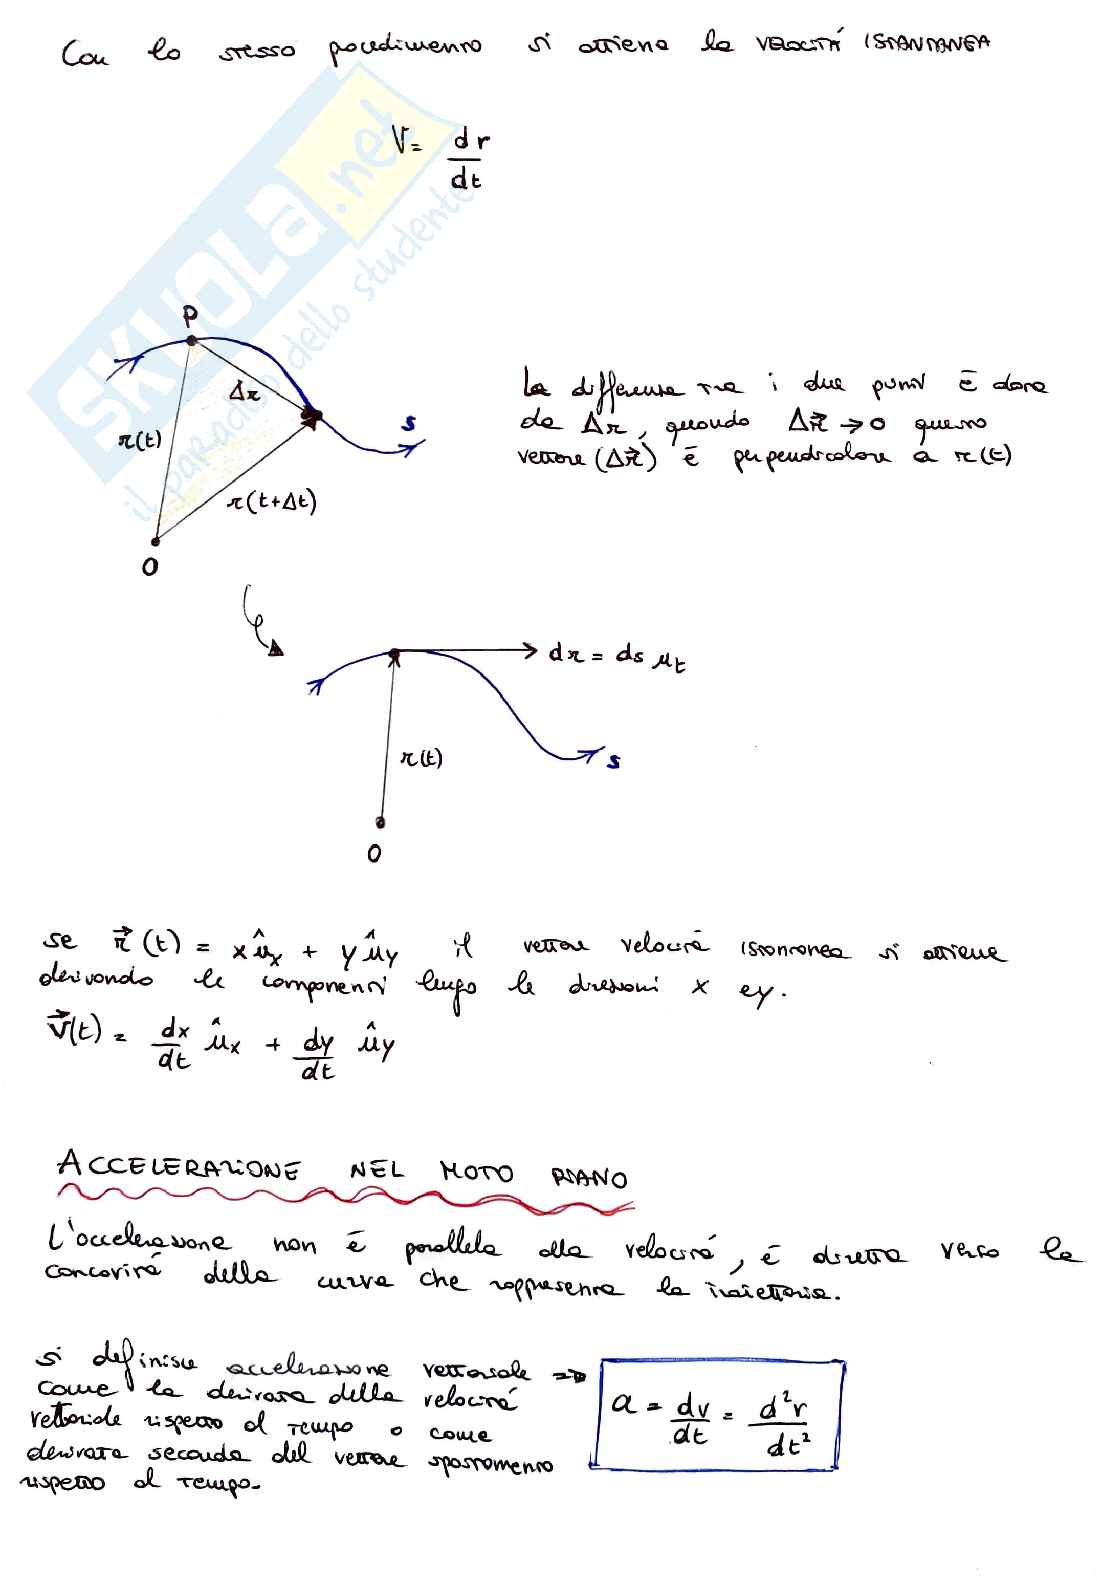 Con lo stesso procedimento si ottiene la VELOCITÁ ISTANTANEA
V = dr/dt
SKUOLA.net
il paradiso dello studente
P
Δr
s
r(t)
r(t+Δt)
O
La differenza tra i due punti è data
da Δr, quando Δr⃗ → 0 questo
vettore (Δr⃗) è perpendicolare a r(t)
dr = ds μt
r(t)
s
O
se r⃗(t) = xûx + yûy il vettore velocità istantanea si ottiene
derivando le componenti lungo le direzioni x e y.
v⃗(t) = dx/dt ûx + dy/dt ûy
ACCELERAZIONE NEL MOTO PIANO
L'accelerazione non è parallela alla velocità, è diretta verso la
concavità della curva che rappresenta la traiettoria.
si definisce accelerazione vettoriale ⇒
come la derivata della velocità
vettoriale rispetto al tempo o come
derivata seconda del vettore spostamento
rispetto al tempo.
a = dv/dt = d²r/dt²